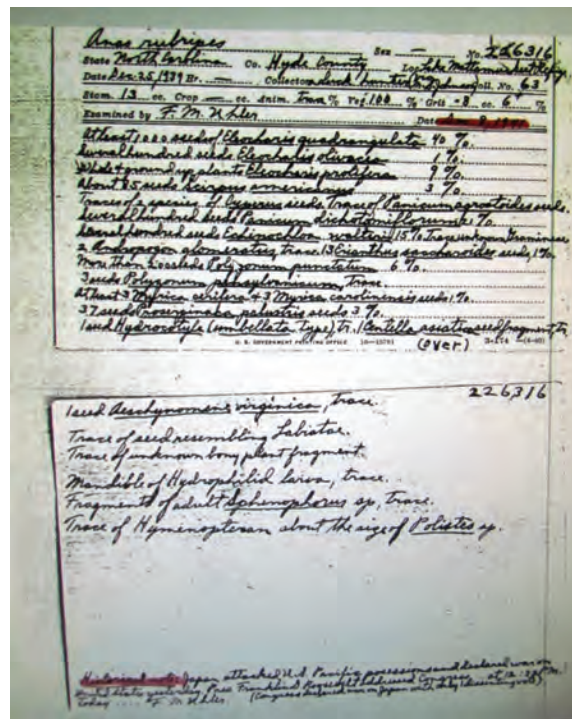 Anas rubripes Sex — No. 226316
State North Carolina Co. Hyde County Loc. Lake Mattamuskeet Refuge
Date Dec. 25, 1939 Hr. — Collector Coll. No. 63
Stom. 13 cc. Crop — cc. Anim. Trace % Veg. 100 % Grit -8 cc. 61 %
Examined by F. M. Uhler Date Dec 8, 1941
At least 1000 seeds of Eleocharis quadrangulata 40 %.
Several hundred seeds Eleocharis olivacea 1 %.
ground up plants Eleocharis prolifera 9 %.
About 85 seeds Scirpus americanus 3 %.
Traces of 2 species of Cyperus seeds. Trace of Panicum agrostoides seeds.
Several hundred seeds Panicum dichotomiflorum %.
Several hundred seed Echinochloa walteri 15 %. Trace unknown Gramineae
2 Andropogon glomeratus, trace. 13 Erianthus saccharoides seeds, 1 %.
More than seeds Polygonum punctatum 6 %.
3 seeds Polygonum pensylvanicum, trace.
At least 3 Myrica cerifera + 3 Myrica carolinensis seeds 1 %.
37 seeds Proserpinaca palustris seeds 3 %.
1 seed Hydrocotyle (umbellata type), tr. 1 Centella asiatica seed fragment, tr.
U. S. GOVERNMENT PRINTING OFFICE (over)
226316
1 seed Aeschynomene virginica, trace.
Trace of seed resembling Labiatae.
Trace of unknown bony plant fragment.
Mandible of Hydrophilid larva, trace.
Fragments of adult Sphenophorus sp., trace.
Trace of Hymenopteran about the size of Polistes sp.
Historical note: Japan attacked U.S. Pacific possessions and declared war on
United States yesterday. Pres. Franklin Roosevelt addressed Congress at 12:30 P.M.
today F. M. Uhler. (Congress declared war on Japan with only 1 dissenting vote).